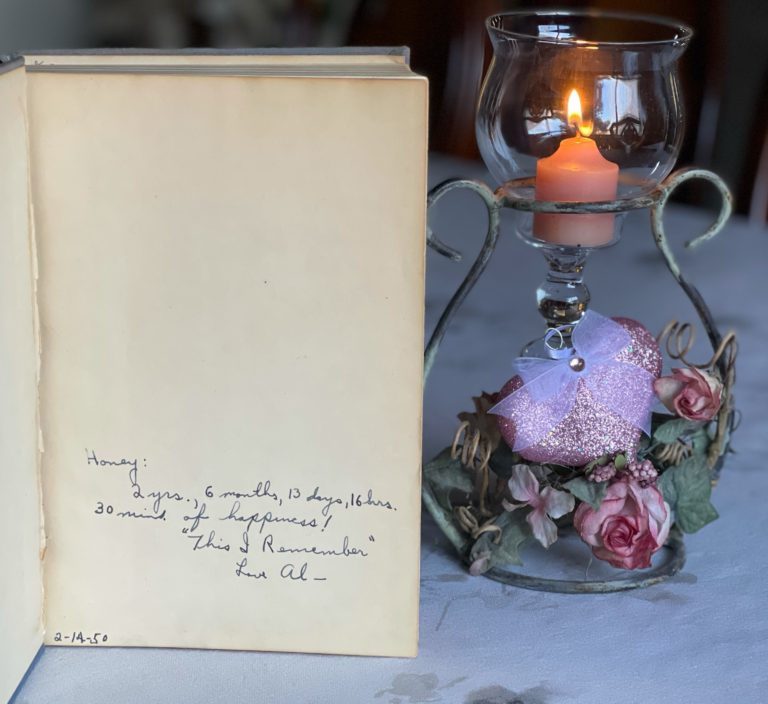 Honey:
2 yrs., 6 months, 13 days, 16 hrs.
30 min. of happiness!
"This I Remember"
Love Al -
2-14-50